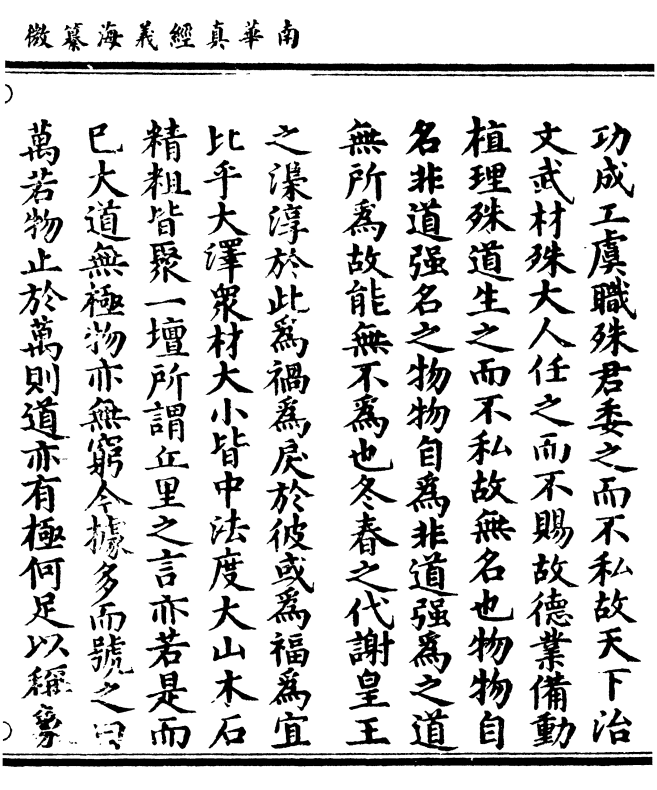 南華真經義海纂微
功成工虞職殊君委之而不私故天下治
文武材殊大人任之而不賜故德業備動
植理殊道生之而不私故無名也物物自
名非道强名之物物自為非道强為之道
無所為故能無不為也冬春之代謝皇王
之漅淳於此為禍為戾於彼或為福為宜
比乎大澤眾材大小皆中法度大山木石
精粗皆聚一壇所謂丘里之言亦若是而
已大道無極物亦無窮今據多而號之曰
萬若物止於萬則道亦有極何足以稱